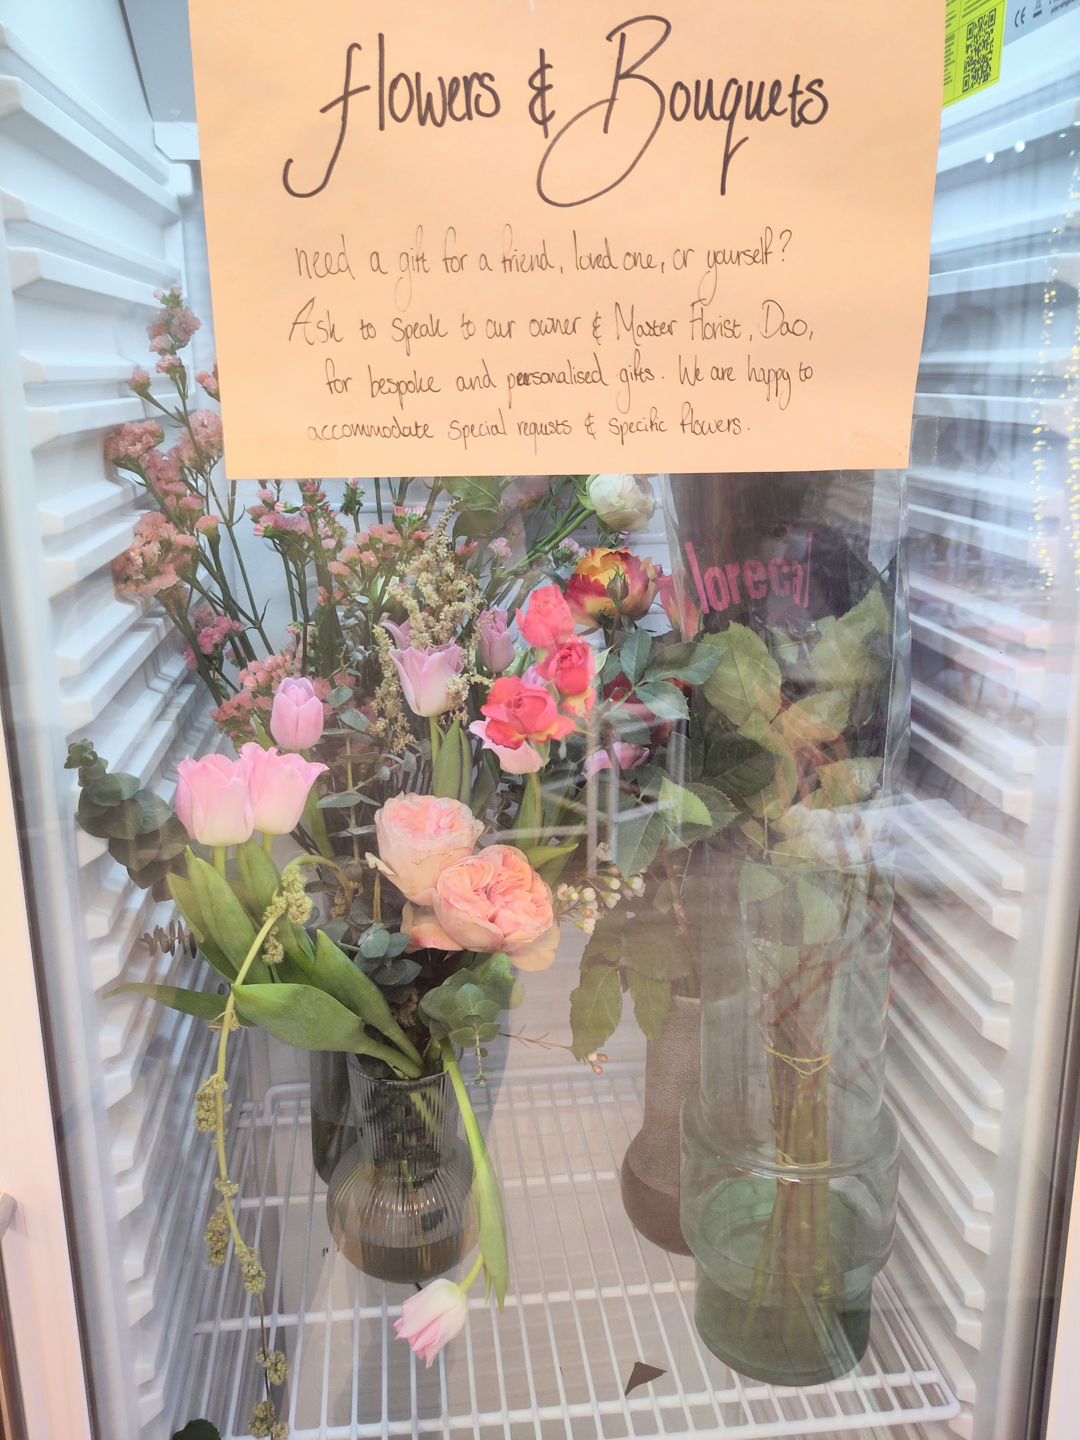 Flowers & Bouquets
need a gift for a friend, loved one, or yourself?
Ask to speak to our owner & Master Florist, Dao,
for bespoke and personalised gifts. We are happy to
accommodate special requests & specific flowers.
CE